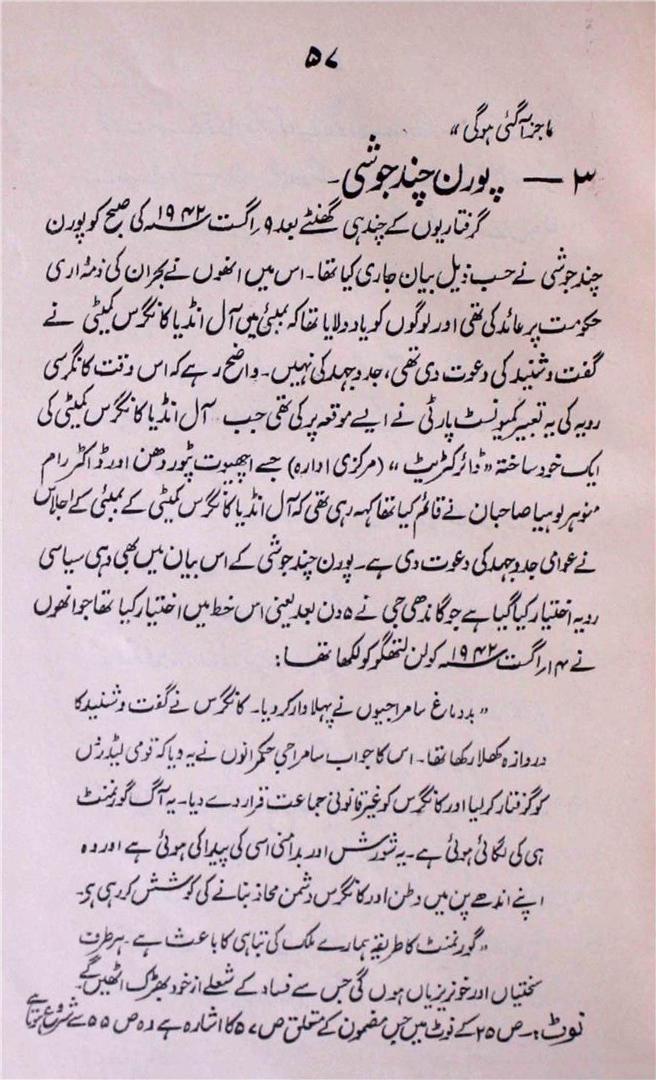 ۵۷
عاجز آ گئی ہوگی "
۳ — پورن چند جوشی ۔
گرفتاریوں کے چند ہی گھنٹے بعد ۹؍ اگست ۱۹۴۲ کی صبح کو پورن
چند جوشی نے حسب ذیل بیان جاری کیا تھا۔ اس میں انھوں نے بحران کی ذمّہ داری
حکومت پر عائد کی تھی اور لوگوں کو یاد دلایا تھا کہ بمبئی میں آل انڈیا کانگرس کمیٹی نے
گفت و شنید کی دعوت دی تھی، جدوجہد کی نہیں۔ واضح رہے کہ اس وقت کانگرسی
رویہ کی یہ تعبیر کمیونسٹ پارٹی نے ایسے موقعہ پر کی تھی جب آل انڈیا کانگرس کمیٹی کی
ایک خود ساختہ " ڈائرکٹریٹ " (مرکزی ادارہ) جسے اچھیوت پٹوردھن اور ڈاکٹر رام
منوہر لوہیا صاحبان نے قائم کیا تھا کہہ رہی تھی کہ آل انڈیا کانگرس کمیٹی کے بمبئی کے اجلاس
نے عوامی جدوجہد کی دعوت دی ہے۔ پورن چند جوشی کے اس بیان میں بھی وہی سیاسی
رویہ اختیار کیا گیا ہے جو گاندھی جی نے ۵ دن بعد یعنی اس خط میں اختیار کیا تھا جو انھوں
نے ۱۴؍ اگست ۱۹۴۲ کو لن لتھگو کو لکھا تھا :
" بددماغ سامراجیوں نے پہلا وار کر دیا۔ کانگرس نے گفت و شنید کا
دروازہ کھلا رکھا تھا۔ اس کا جواب سامراجی حکمرانوں نے یہ دیا کہ قومی لیڈرں
کو گرفتار کر لیا اور کانگرس کو غیر قانونی جماعت قرار دے دیا۔ یہ آگ گورنمنٹ
ہی کی لگائی ہوئی ہے۔ یہ شورش اور بدامنی اسی کی پیدا کی ہوئی ہے اور وہ
اپنے اندھے پن میں وطن اور کانگرس دشمن محاذ بنانے کی کوشش کر رہی ہے۔
" گورنمنٹ کا طریقہ ہمارے ملک کی تباہی کا باعث ہے۔ ہر طرف
سختیاں اور خونریزیاں ہوں گی جس سے فساد کے شعلے از خود بھڑک اٹھیں گے۔
نوٹ :۔ ص ۲۵ کے نوٹ میں جس مضمون کے متعلق ص ۵۷ کا اشارہ ہے وہ ص ۵۵ سے شروع ہوتا ہے